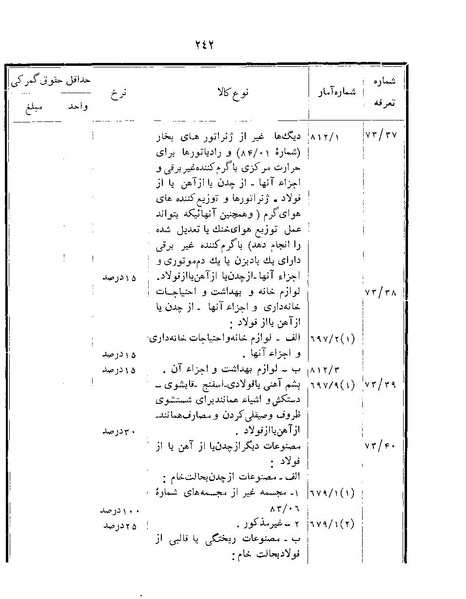 ۲۴۲
شماره تعرفه
شماره آمار
نوع کالا
نرخ
حداقل حقوق گمرکی
واحد
مبلغ
۷۳/۳۷ ۸۱۲/۱ دیگ‌ها غیر از ژنراتور های بخار
(شمارهٔ ۸۴/۰۱) و رادیاتورها برای
حرارت مرکزی باگرم‌کننده غیربرقی و
اجزاء آنها ـ از چدن یا ازآهن یا از
فولاد . ژنراتورها و توزیع‌کننده های
هوای‌گرم ( وهمچنین آنهائیکه بتواند
عمل توزیع هوای‌خنك یا تعدیل شده
را انجام دهد) باگرم‌کننده غیر برقی
دارای یك بادبزن یا یك دم‌موتوری و
اجزاء آنها ـ ازچدن‌یا ازآهن‌یاازفولاد. ۱۵درصد
۷۳/۳۸ لوازم خانه و بهداشت و احتیاجات
خانه‌داری و اجزاء آنها ـ از چدن یا
ازآهن یااز فولاد :
۶۹۷/۲(۱) الف ـ لوازم خانه‌واحتیاجات خانه‌داری
و اجزاء آنها . ۱۵درصد
۸۱۲/۳ ب ـ لوازم بهداشت و اجزاء آن . ۱۵درصد
۷۳/۳۹ ۶۹۷/۹(۱) پشم آهنی یافولادی‌ـ‌اسفنج ـقابشوی ـ
دستکش‌و اشیاء همانندبرای شستشوی
ظروف وصیقلی‌کردن و مصارف‌همانندـ
ازآهن‌یاازفولاد. ۳۰درصد
۷۳/۴۰ مصنوعات دیگرازچدن‌یا از آهن یا از
فولاد :
الف ـ مصنوعات ازچدن‌بحالت‌خام :
۶۷۹/۱(۱) ۱ـ مجسمه غیر از مجسمه‌های شمارهٔ
۸۳/۰۶ ۱۰۰درصد
۶۷۹/۱(۲) ۲ ـ غیرمذکور . ۲۵درصد
ب ـ مصنوعات ریختگی یا قالبی از
فولادبحالت خام :